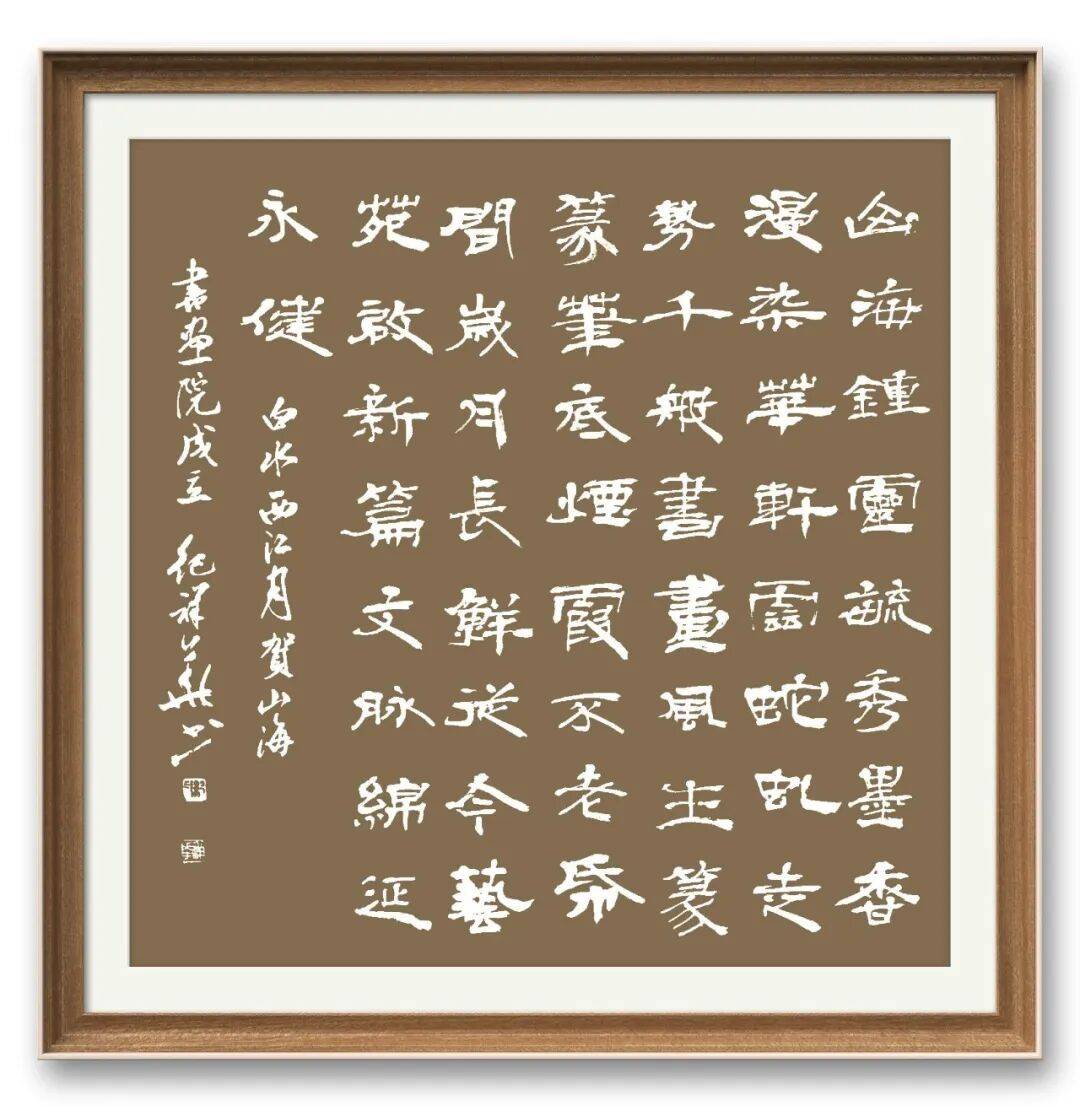 山海鍾靈毓秀墨香
漫染華軒雲蛇虬走
勢千般書畫風生篆
篆筆底煙霞不老帋
間歲月長鮮從今藝
苑啟新篇文脈綿延
永健
白水西江月賀山海
書畫院成立 紀祥